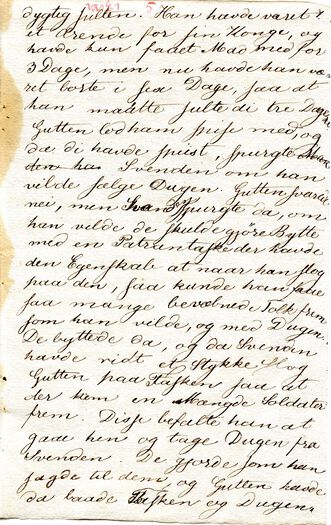 dygtig sulten. Han havde været i
et Ærende for sin Konge, og
havde kun faaet Mad med for
3 Dage, men nu havde han væ-
ret borte i sex Dage, saa at
han maatte sulte di tre Dage.
Gutten lod ham spise med, og
da di havde spiist, spurgte
Svenden om han
vilde sælge Dugen. Gutten svarte
nei, men Svend spurgte da, om
han vilde de skulde gjøre Bytte
med en Patrontaske der havde
den Egenskab at naar han slog
paa den, saa kunde han faae
saa mange bevæbnede Folk frem
som han vilde, og med Dugen.
De byttede da, og da Svenden
havde ridt et Stykke slog
Gutten paa Tasken saa at
der kom en Mængde Soldater
frem. Disse befalte han at
gaae hen og tage Dugen fra
Svenden De gjorde som han
sagde til dem, og Gutten havde
da baade Tasken og Dugen.